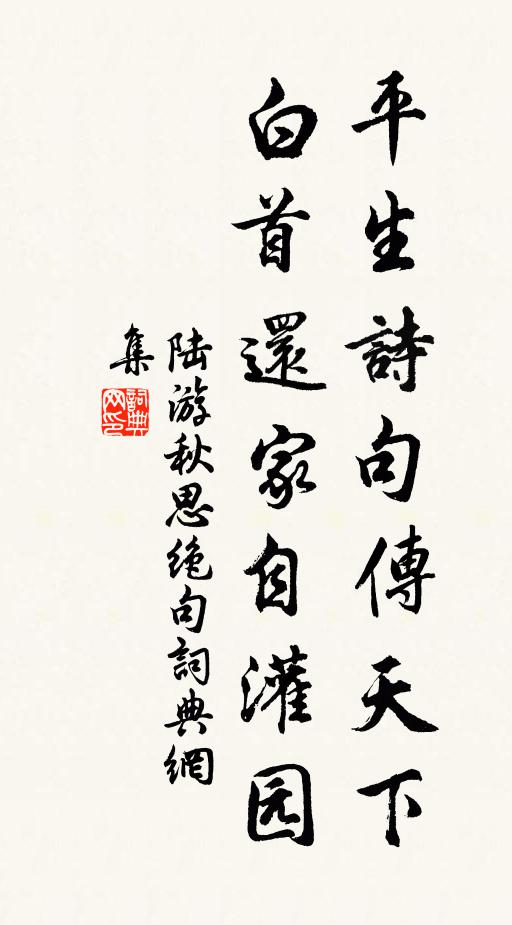 平生詩句傳天下
白首還家自灌园
陆游秋思绝句詞典網
集
詞典
网印